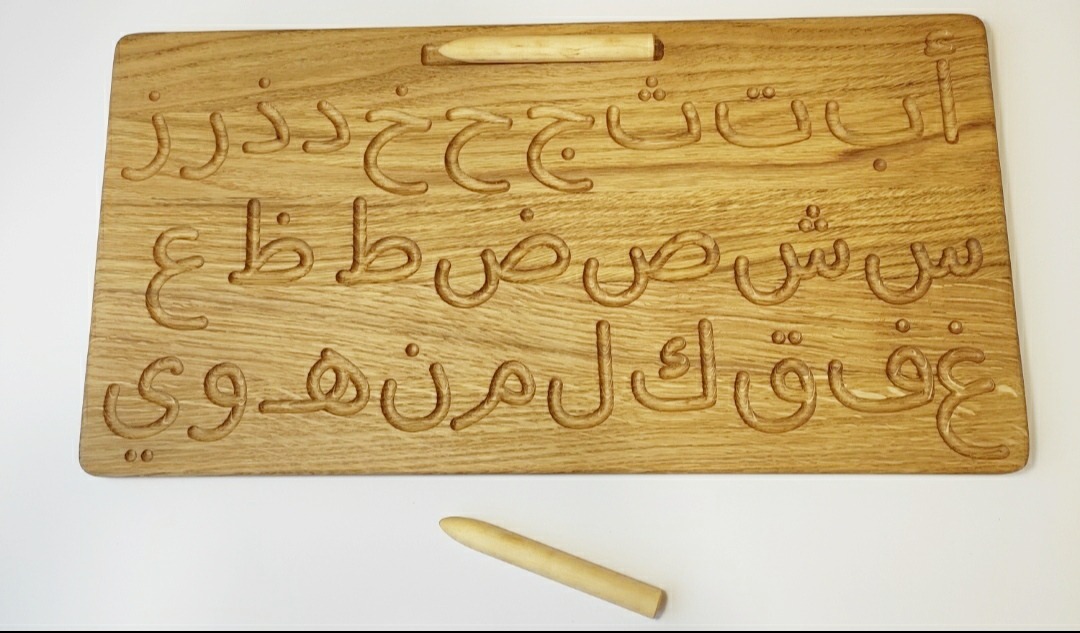 أ ب ت ث ج ح خ د ذ ر ز
س ش ص ض ط ظ ع
غ ف ق ك ل م ن هـ و ي